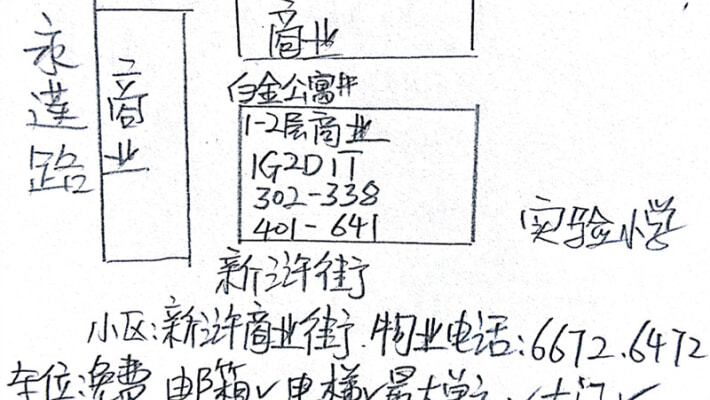 永莲路
商业
商业
白金公寓
1-2层商业
1G2D1T
302-338
401-641
实验小学
新浒街
小区:新浒商业街.物业电话:6672.6472
车位:免费 邮箱✓电梯✓最大单元